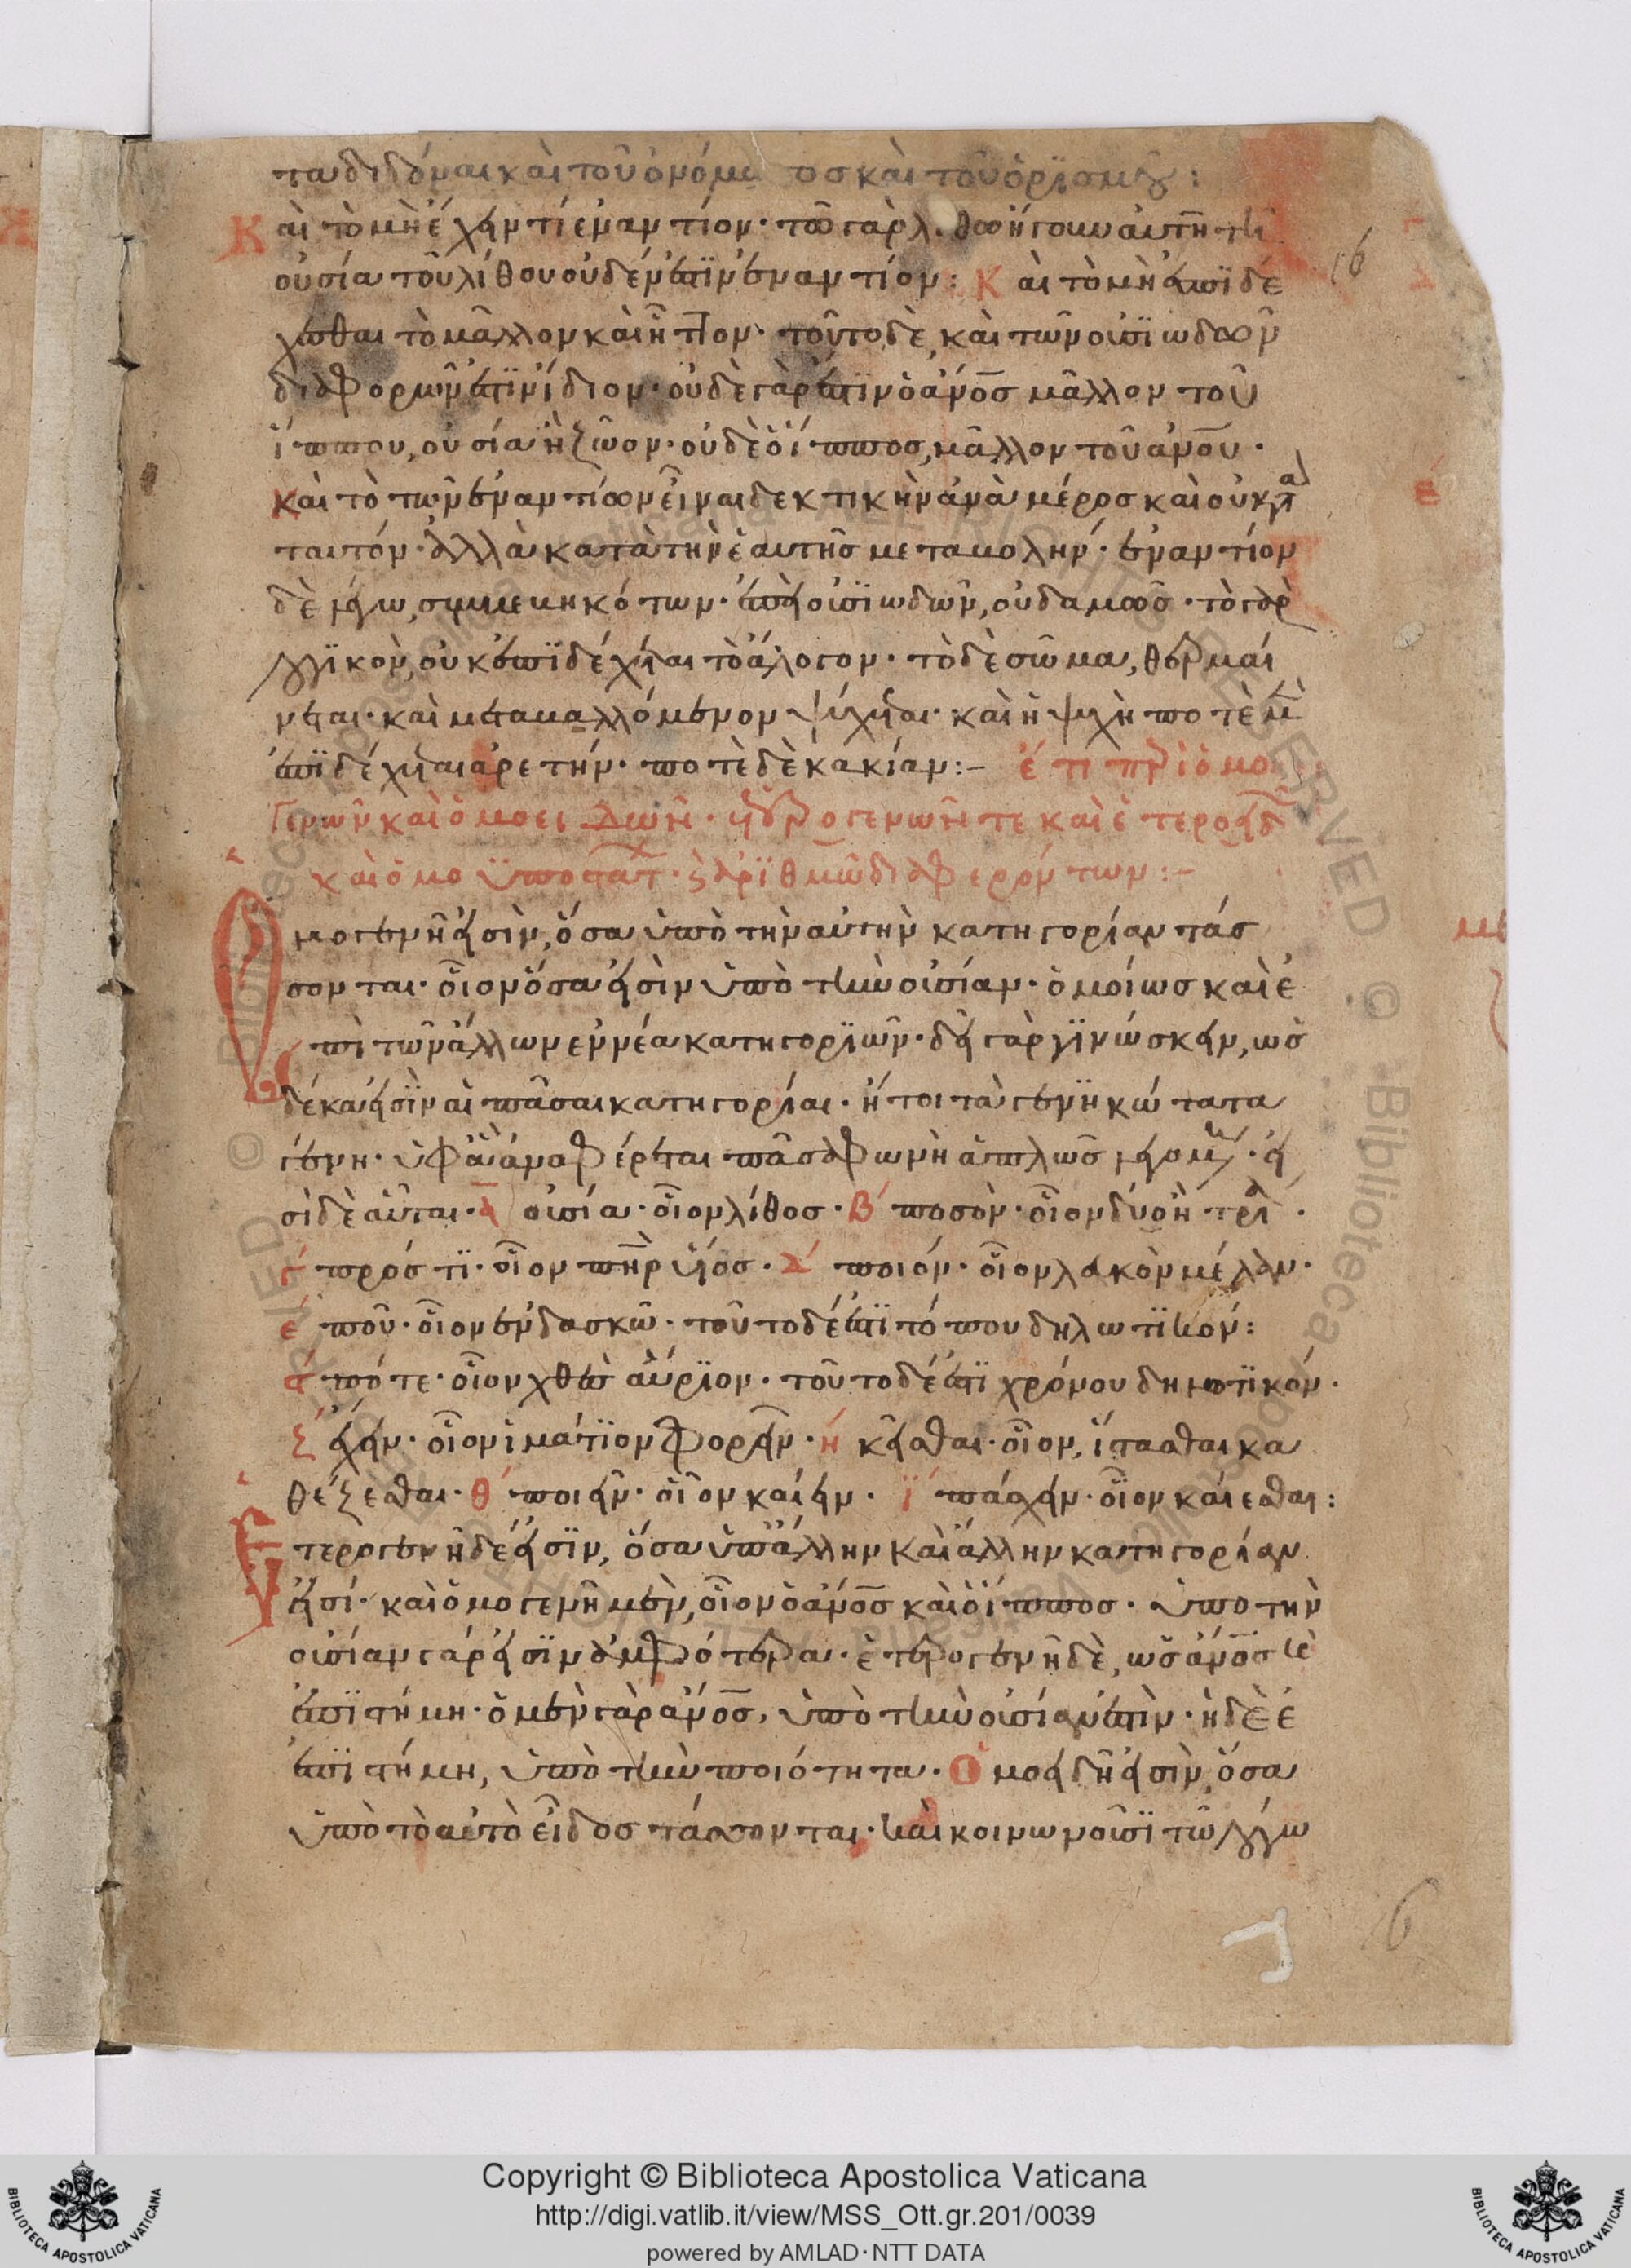 ταδιδόναι καὶ τοῦ ὀνόματος καὶ τοῦ ὁρισμοῦ:
Καὶ τὸ μὴ ἔχειν τί ἐναντίον· τῶ γὰρ λίθω ἤγουν αὐτῆ τῆ
οὐσία τοῦ λίθου οὐδέν ἐστϊν ἐναντίον: Καὶ τὸ μὴ ἐπϊδέ
χεσθαι τὸ μᾶλλον καὶ ἧττον· τοῦτο δὲ, καὶ τῶν οὐσϊωδῶν
διαφορῶν ἐστϊν ἴδιον· οὐδὲ γάρ ἐστϊν ὁ ἄνος μᾶλλον τοῦ
ἵππου, οὐσία ἢ ζῶον· οὐδὲ ὁ ἵππος, μᾶλλον τοῦ ἀνου·
καὶ τὸ τῶν ἐναντίων εἶναι δεκτικὴν ἀνὰ μέρος καὶ οὐ κατα
ταυτόν· ἀλλὰ κατὰ τὴν ἑαυτῆς μεταβολήν· ἐναντίον
δὲ λέγω, συμβεβηκότων· ἐπεὶ οὐσϊωδῶν, οὐδαμῶς· τὸ γὰρ
λογϊκὸν, οὐκ ἐπϊδέχεται τὸ ἄλογον· τὸ δὲ σῶμα, θερμαί
νεται· καὶ μεταβαλλόμενον ψύχεται· καὶ ἡ ψυχὴ ποτὲ μὲν
ἐπϊδέχεται ἀρετήν· ποτὲ δὲ κακίαν:– ἔτι περὶ ὁμο
γενῶν καὶ ὁμοειδῶν· ἑτερογενῶν τε καὶ ἑτεροειδῶν
καὶ ὁμοϋποστάτων· καὶ ἀρϊθμῶ διαφερόντων:–
Ὁμογενῆ εἰσὶν, ὅσα ὑπὸ τὴν αὐτὴν κατηγορίαν τάσ
σονται· οἷον ὅσα εἰσὶν ὑπὸ τὴν οὐσίαν· ὁμοίως καὶ ἐ
πὶ τῶν ἄλλων ἐννέα κατηγορϊῶν· δεῖ γὰρ γϊνώσκειν, ὡς
δέκα εἰσϊν αἱ πᾶσαι κατηγορίαι· ἤτοι τὰ γενϊκώτατα
γένη· ὑφ' ἃ ἀναφέρεται πᾶσα φωνὴ ἁπλῶς λεγομένη· εἰ
σὶ δὲ αὗται· ά οὐσία· οἷον λίθος· β́ ποσὸν· οἷον δύο ἢ τρία·
γ́ πρός τϊ· οἷον πηρ υἱός· δ́ ποιόν· οἷον λευκὸν μέλαν·
έ ποῦ· οἷον ἐν δαμασκῶ· τοῦτο δέ ἐστϊ τόπου δηλωτϊκόν:
ϛ́ πότε· οἷον χθὲς αὔρϊον· τοῦτο δέ ἐστϊ χρόνου δηλωτϊκόν·
ζ́ ἔχειν· οἷον ἱμάτϊον φορεῖν· ή κεῖσθαι· οἷον, ἵστασθαι κα
θέζεσθαι· θ́ ποιεῖν· οἷον καίειν· ΐ πάσχειν· οἷον καίεσθαι:
Ἑτερογενῆ δέ εἰσϊν, ὅσα ὑπ' ἄλλην καὶ ἄλλην κατηγορίαν
εἰσί· καὶ ὁμογενῆ μὲν, οἷον ὁ ἄνος καὶ ὁ ἵππος· ὑπο τὴν
οὐσίαν γάρ εἰσϊν ἀμφότερα· ἑτερογενῆ δὲ, ὡς ἄνος καὶ
ἐπϊστήμη· ὁ μὲν γὰρ ἄνος, ὑπὸ τὴν οὐσίαν ἐστὶν· ἡ δὲ ἐ
ἐπϊστήμη, ὑπὸ τὴν ποιότητα· Ὁμοειδῆ εἰσὶν, ὅσα
ὑπὸ τὸ αὐτὸ εἶδος τάσσονται· καὶ κοινωνοῦσϊ τῶ λόγω
16
6
Copyright © Biblioteca Apostolica Vaticana
http://digi.vatlib.it/view/MSS_Ott.gr.201/0039
powered by AMLAD·NTT DATA
BIBLIOTECA APOSTOLICA VATICANA
BIBLIOTECA APOSTOLICA VATICANA